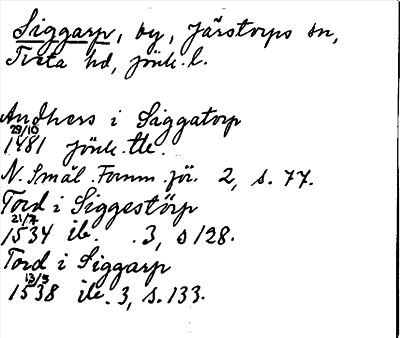 Siggarp, by, Järstorps sn,
Tveta hd, Jönk. l.
Andhers i Siggatorp
29/10
1481 Jönk. tle.
N. Smål. Fornm. för. 2, s. 77.
Tord i Siggestörp
21/7
1534 ib. . 3, s 128.
Tord i Siggarp
13/3
1538 ib. 3, s. 133.